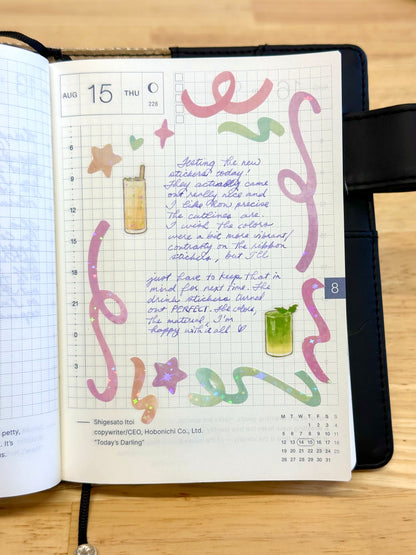 AUG 15 THU
228
6
9
12
15
18
21
0
3
Testing the new
stickers today!
They actually came
out really nice and
I like how precise
the cutlines are.
I wish the colors
were a bit more vibrant/
contrasty on the ribbon
stickers, but I'll
just have to keep that in
mind for next time. The
drink stickers turned
out PERFECT. The colors,
the material, I'm
happy with it all
8
Shigesato Itoi
copywriter/CEO, Hobonichi Co., Ltd.
"Today's Darling"
M T W T F S S
1 2 3 4
5 6 7 8 9 10 11
12 13 14 15 16 17 18
19 20 21 22 23 24 25
26 27 28 29 30 31
petty,
It's